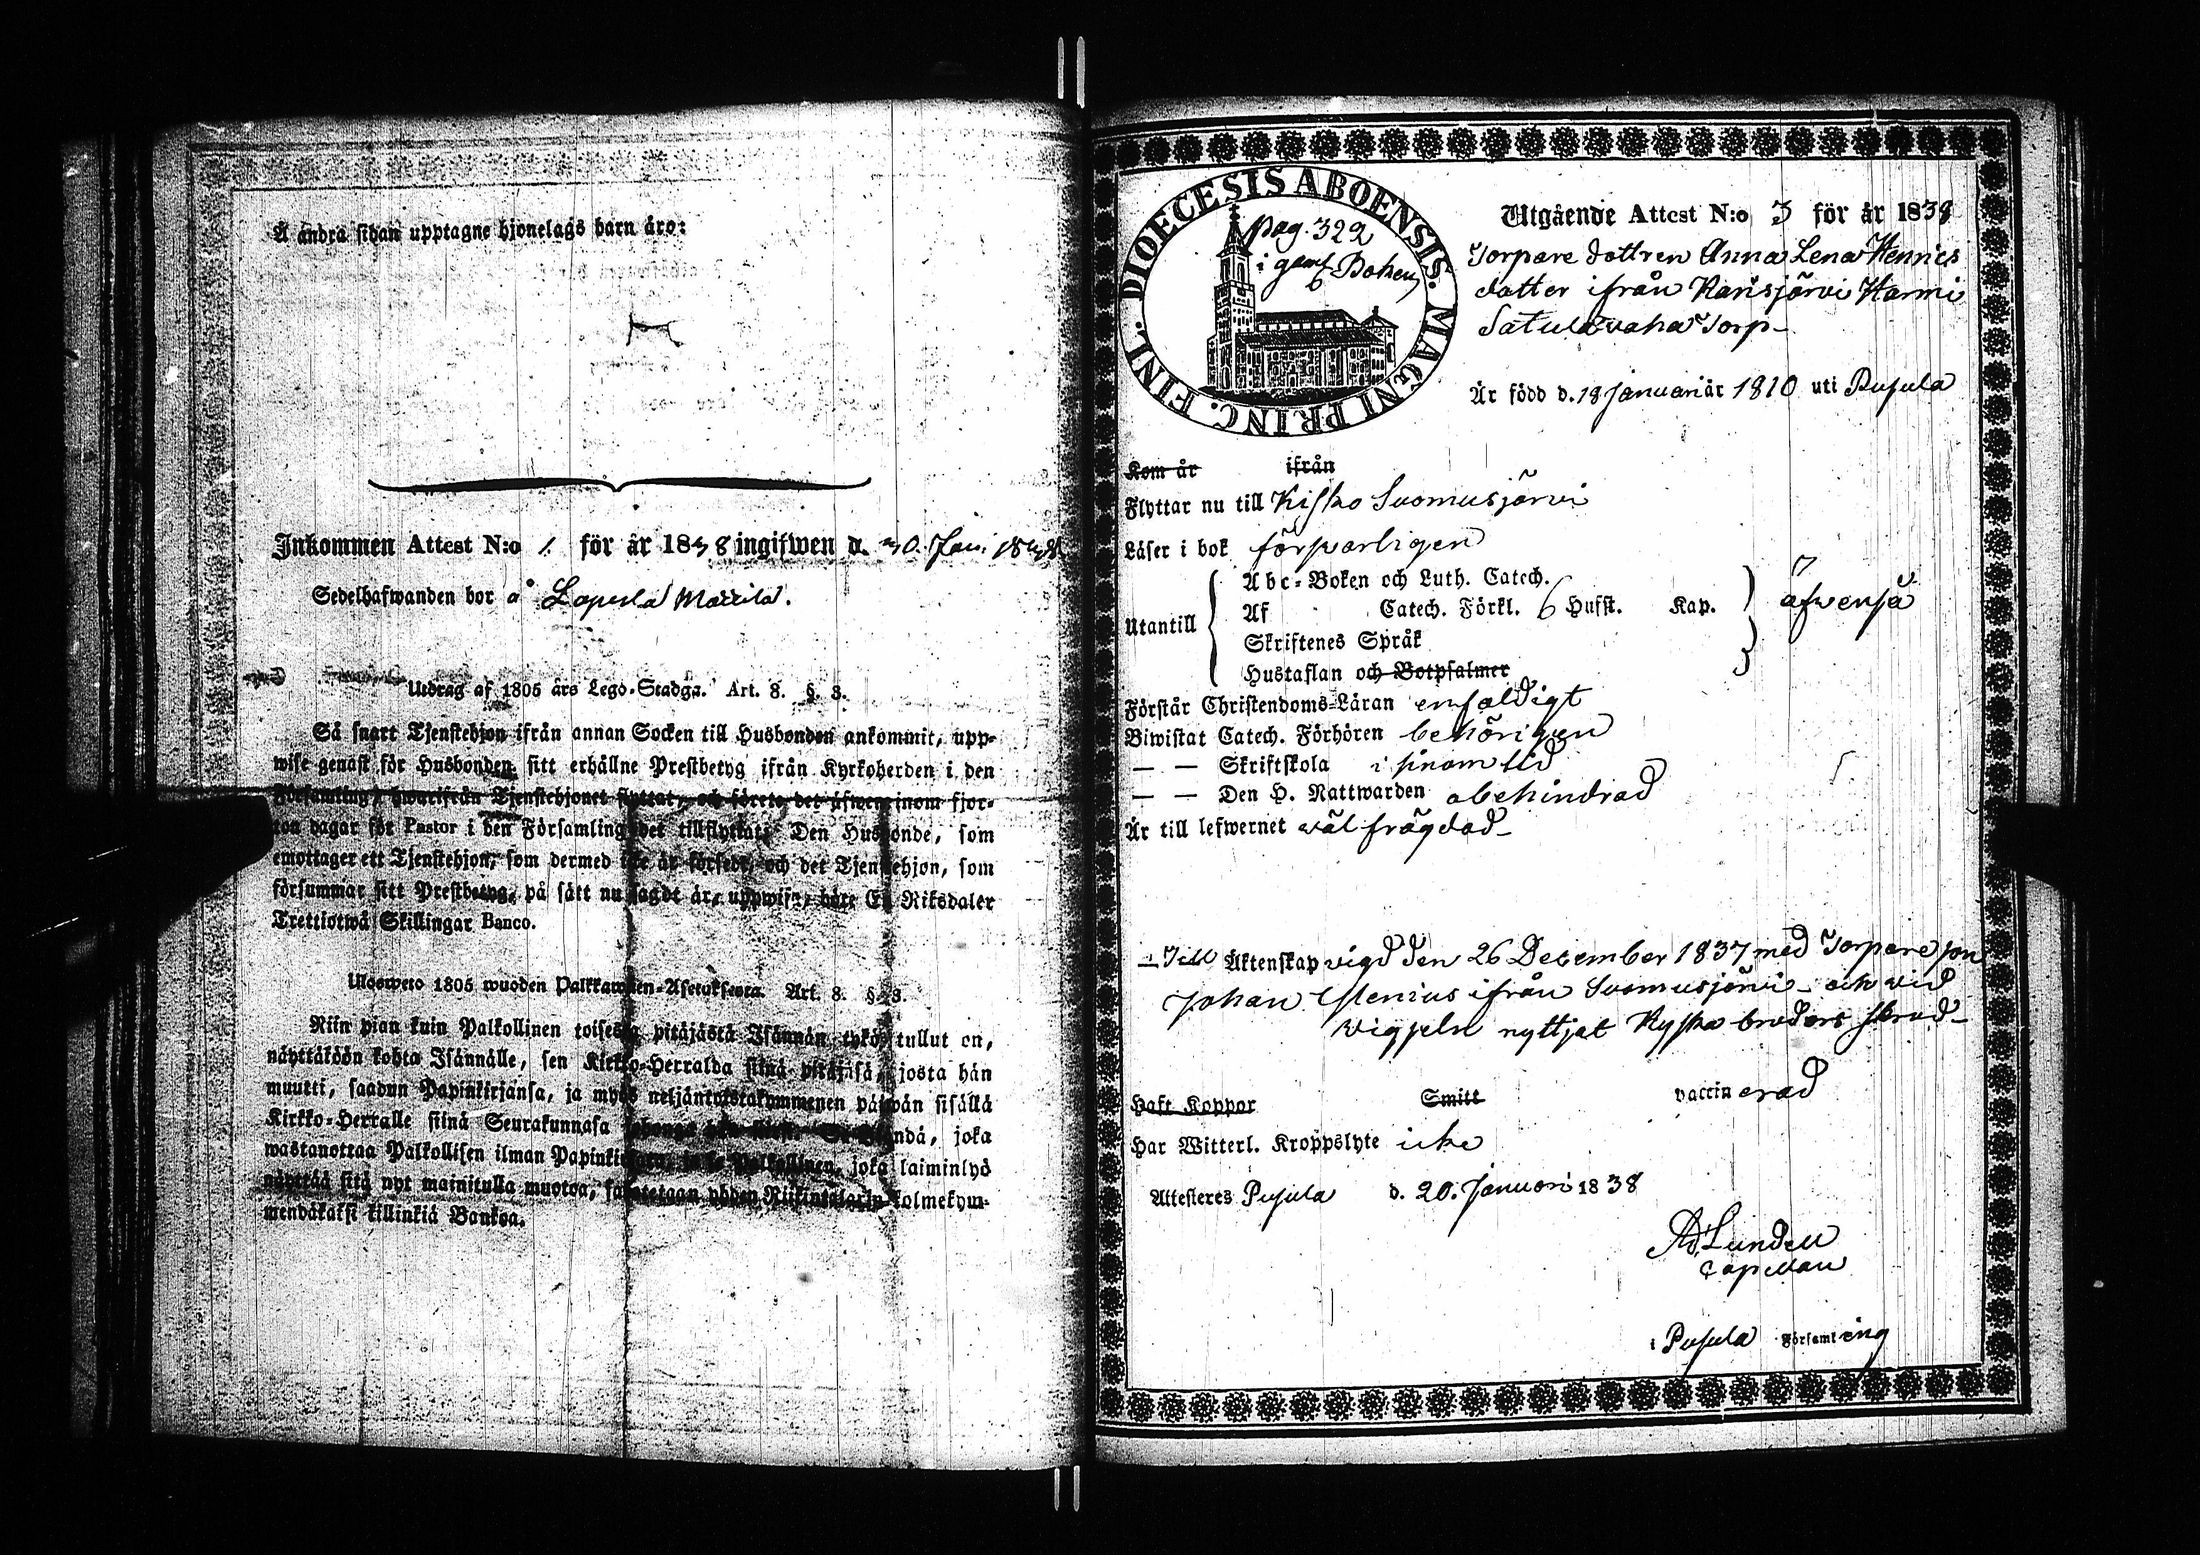 Å andra sidan upptagne hjonelags barn äro:
Inkommen Attest N:o 1. för år 1838 ingifwen d. 30. Jan. 1838
Sedelhafwanden bor å Laperla
Utdrag af 1805 års Lego-Stadga. Art. 8. §. 3.
Så snart Tjenstehjon ifrån annan Socken till Husbonden ankommit, upp-
wise genast för Husbonden sitt erhållne Prestbetyg ifrån Kyrkoherden i den
Församling, hwarifrån Tjenstehjonet flyttat, och förete det äfwen inom fjor-
ton dagar för Pastor i den Församling det tillflyttat. Den Husbonde, som
emottager ett Tjenstehjon, som dermed icke är försedt, och det Tjenstehjon, som
försummar sitt Prestbetyg, på sätt nu sagdt är, uppwisa, böte En Riksdaler
Trettiotwå Skillingar Banco.
Ulosweto 1805 wuoden Palkkawäen-Asetuksesta. Art. 8. §. 3.
Niin pian kuin Palkollinen toisesta pitäjästä Isännän tykö tullut on,
näyttäköön kohta Isännälle, sen Kirkko-Herralda siinä pitäjäsä, josta hän
muutti, saadun Papinkirjansa, ja myös neljäntoistakymmenen päiwän sisällä
Kirkko-Herralle siinä Seurakunnasa Isändä, joka
wastanottaa Palkollisen ilman Papinkirjata, ja se Palkollinen, joka laiminlyö
näyttää sitä nyt mainitulla muotoa, sakotetaan yhden Riikintalarin kolmekym-
mendäkaksi killinkiä Bankoa.
DIOECESIS ABOENSIS. MAGNI PRINC. FINL.
Pag. 322
i gaml Boken
Utgående Attest N:o 3 för år 1838
Torpare dottren Anna Lena Henrics
dotter ifrån Karisjärvi Harmi
Satulavaha Torp-
Är född d. 18 Januari år 1810 uti Pusula
Kom år ifrån
Flyttar nu till Kisko Suomusjärvi
Läser i bok försvarligen
Utantill
Abc-Boken och Luth. Catech.
Af Catech. Förkl. 6 Hufst. Kap.
Skriftenes Språk
Hustaflan och Botpsalmer
äfvenså
Förstår Christendoms-Läran enfaldigt
Biwistat Catech. Förhören behörigen
— — Skriftskola i sinom tid
— — Den H. Nattwarden obehindrad
Är till lefwernet väl frägdad-
Till Äktenskap vigd den 26 December 1837 med Torpare son
Johan Stenius ifrån Suomusjärvi och vid
vigseln nyttjat Kyrko bruders skrud-
Haft Koppor Smitt vaccinerad
Har Witterl. Kroppslyte icke
Attesteres Pusula d. 20. Januari 1838
Ad. Lundell
Capellan
i Pusula Församling